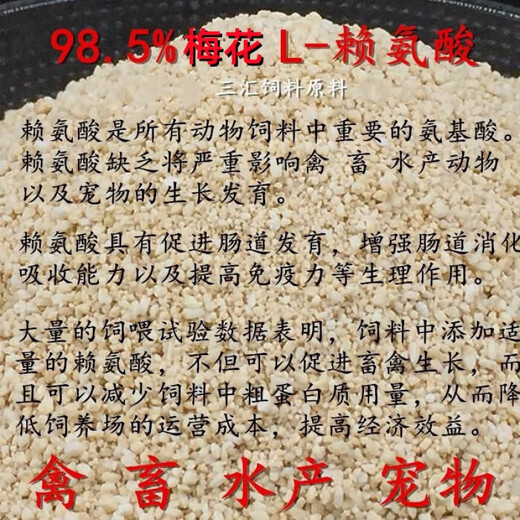 98.5%梅花 L-赖氨酸
三汇饲料原料
赖氨酸是所有动物饲料中重要的氨基酸。
赖氨酸缺乏将严重影响禽 畜 水产动物
以及宠物的生长发育。
赖氨酸具有促进肠道发育，增强肠道消化
吸收能力以及提高免疫力等生理作用。
大量的饲喂试验数据表明，饲料中添加适
量的赖氨酸，不但可以促进畜禽生长，而
且可以减少饲料中粗蛋白质用量，从而降
低饲养场的运营成本，提高经济效益。
禽 畜 水产 宠物